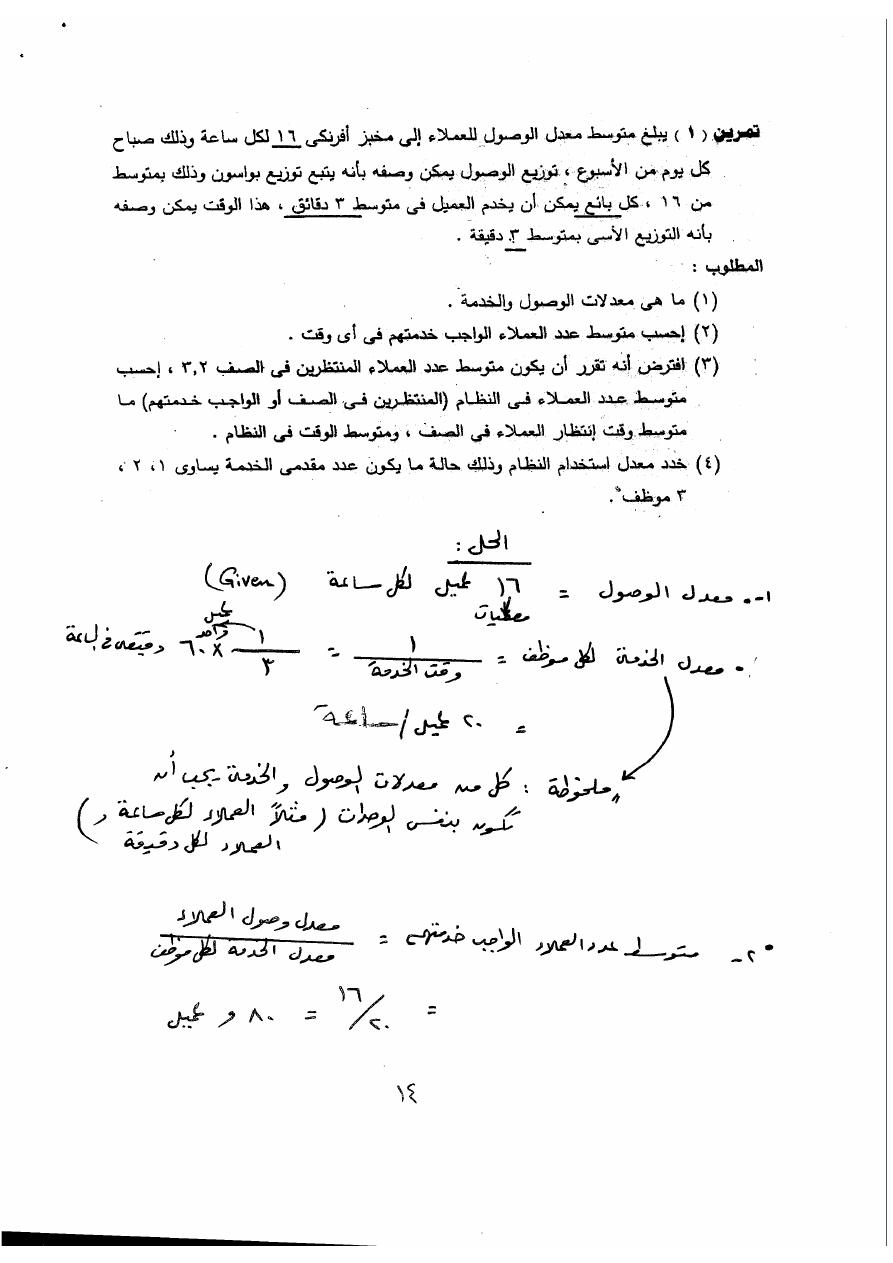 تمرين ( ١ ) يبلغ متوسط معدل الوصول للعملاء إلى مخبز أفرنكى ١٦ لكل ساعة وذلك صباح
كل يوم من الأسبوع ، توزيع الوصول يمكن وصفه بأنه يتبع توزيع بواسون وذلك بمتوسط
من ١٦ ، كل بائع يمكن أن يخدم العميل فى متوسط ٣ دقائق ، هذا الوقت يمكن وصفه
بأنه التوزيع الأسى بمتوسط ٣ دقيقة .
المطلوب :
(١) ما هى معدلات الوصول والخدمة .
(٢) إحسب متوسط عدد العملاء الواجب خدمتهم فى أى وقت .
(٣) افترض أنه تقرر أن يكون متوسط عدد العملاء المنتظرين فى الصف ٣,٢ ، إحسب
متوسط عدد العملاء فى النظام (المنتظرين فى الصف أو الواجب خدمتهم) ما
متوسط وقت إنتظار العملاء فى الصف ، ومتوسط الوقت فى النظام .
(٤) خدد معدل استخدام النظام وذلك حالة ما يكون عدد مقدمى الخدمة يساوى ١، ٢ ،
٣ موظف .
الحل :
١- معدل الوصول = ١٦ عميل لكل ساعة (Given)
معطيات
عميل واحد
معدل الخدمة لكل موظف = ١ / وقت الخدمة = ١ / ٣ × ٦٠ دقيقة فى الساعة
= ٢٠ عميل / ساعة
ملحوظة : كل من معدلات الوصول والخدمة يجب أن
تكون بنفس الوحدات ( مثلاً العملاء لكل ساعة و
العملاء لكل دقيقة )
٢- متوسط عدد العملاء الواجب خدمتهم = معدل وصول العملاء / معدل الخدمة لكل موظف
= ١٦ / ٢٠ = ٨٠ و عميل
١٤